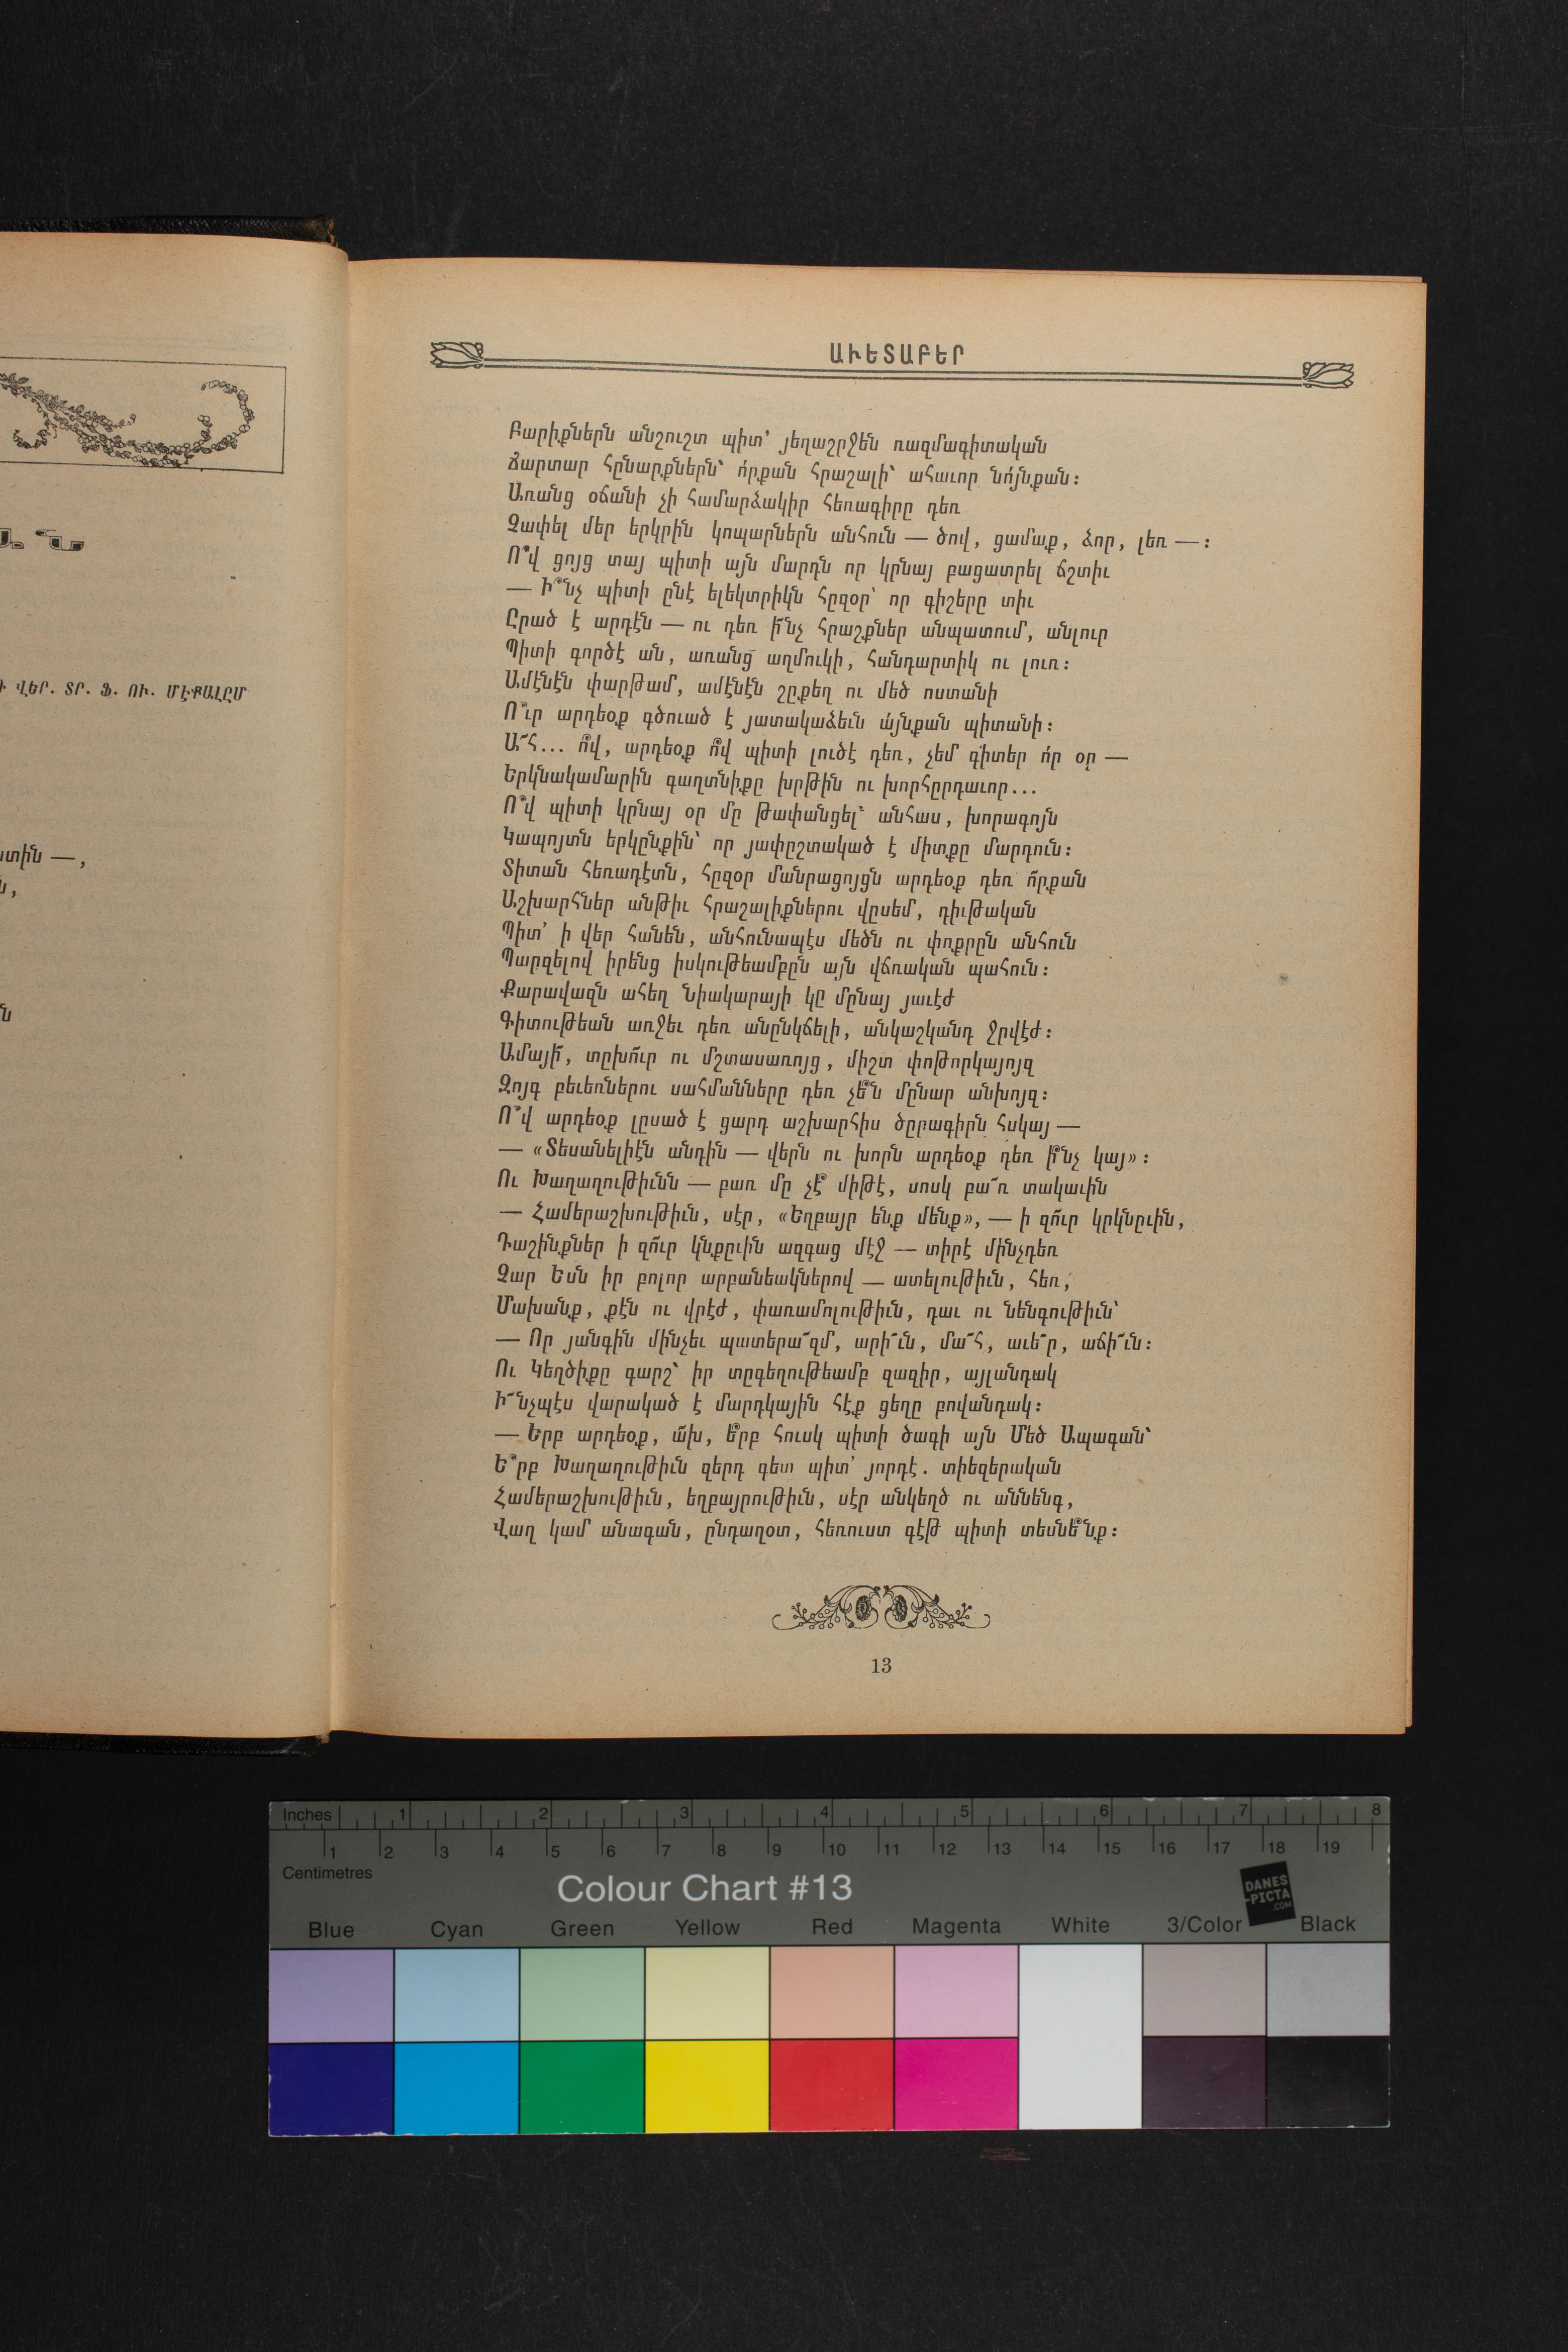 ԱՒԵՏԱԲԵՐ
Վ ՎԵՐ. ՏՐ. Ֆ. ՈՒ. ՄԷՔԱԼԸՄ
Բարիքներն անշուշտ պիտ՚ յեղաշրջեն ռազմագիտական
Ճարտար հընարքներն՝ ո՛րքան հրաշալի՝ ահաւոր նո՛յնքան։
Առանց օճանի չի համարձակիր հեռագիրը դեռ
Չափել մեր երկրին կոպարներն անհուն — ծով, ցամաք, ձոր, լեռ —։
Ո՞վ ցոյց տայ պիտի այն մարդն որ կրնայ բացատրել ճշտիւ
— Ի՞նչ պիտի ընէ ելեկտրիկն հըզօր՝ որ գիշերը տիւ
Ըրած է արդէն — ու դեռ ի՜նչ հրաշքներ անպատում, անլուր
Պիտի գործէ ան, առանց աղմուկի, հանդարտիկ ու լուռ։
Ամէնէն փարթամ, ամէնէն շըքեղ ու մեծ ոստանի
Ո՞ւր արդեօք գծուած է յատակաձեւն ա՛յնքան պիտանի։
Ա՜հ... ո՞վ, արդեօք ո՞վ պիտի լուծէ դեռ, չեմ գիտեր ո՛ր օր —
Երկնակամարին գաղտնիքը խրթին ու խորհըրդաւոր...
Ո՞վ պիտի կրնայ օր մը թափանցել՝ անհաս, խորագոյն
Կապոյտն երկընքին՝ որ յափըշտակած է միտքը մարդուն։
Տիտան հեռադէտն, հըզօր մանրացոյցն արդեօք դեռ ո՜րքան
Աշխարհներ անթիւ հրաշալիքներու վըսեմ, դիւթական
Պիտ՚ ի վեր հանեն, անհունապէս մեծն ու փոքրըն անհուն
Պարզելով իրենց իսկութեամբըն այն վճռական պահուն։
Քարավազն ահեղ Նիակարայի կը մընայ յաւէժ
Գիտութեան առջեւ դեռ անընկճելի, անկաշկանդ ջրվէժ։
Ամայի՜, տըխո՜ւր ու մշտասառոյց, միշտ փոթորկայոյզ
Զոյգ բեւեռներու սահմանները դեռ չե՞ն մընար անխոյզ։
Ո՞վ արդեօք լըսած է ցարդ աշխարհիս ծըրագիրն հսկայ —
— «Տեսանելիէն անդին — վերն ու խորն արդեօք դեռ ի՞նչ կայ»։
Ու Խաղաղութիւնն — բառ մը չէ՞ միթէ, սոսկ բա՜ռ տակաւին
— Համերաշխութիւն, սէր, «Եղբայր ենք մենք», — ի զո՜ւր կրկնըւին,
Դաշինքներ ի զո՜ւր կնքըւին ազգաց մէջ — տիրէ մինչդեռ
Չար Եսն իր բոլոր արբանեակներով — ատելութիւն, հեռ,
Մախանք, քէն ու վրէժ, փառամոլութիւն, դաւ ու նենգութիւն՝
— Որ յանգին մինչեւ պատերա՜զմ, արի՜ւն, մա՜հ, աւե՜ր, աճի՜ւն։
Ու Կեղծիքը գարշ՝ իր տըգեղութեամբ զազիր, այլանդակ
Ի՜նչպէս վարակած է մարդկային հէք ցեղը բովանդակ։
— Երբ արդեօք, ա՜խ, ե՞րբ հուսկ պիտի ծագի այն Մեծ Ապագան՝
Ե՞րբ Խաղաղութիւն զերդ գետ պիտ՚ յորդէ. տիեզերական
Համերաշխութիւն, եղբայրութիւն, սէր անկեղծ ու աննենգ,
Վաղ կամ անագան, ընդաղօտ, հեռուստ գէթ պիտի տեսնե՞նք։
13
Inches 1 2 3 4 5 6 7 8
1 2 3 4 5 6 7 8 9 10 11 12 13 14 15 16 17 18 19
Centimetres
Colour Chart #13
DANES
-PICTA
.COM
Blue Cyan Green Yellow Red Magenta White 3/Color Black